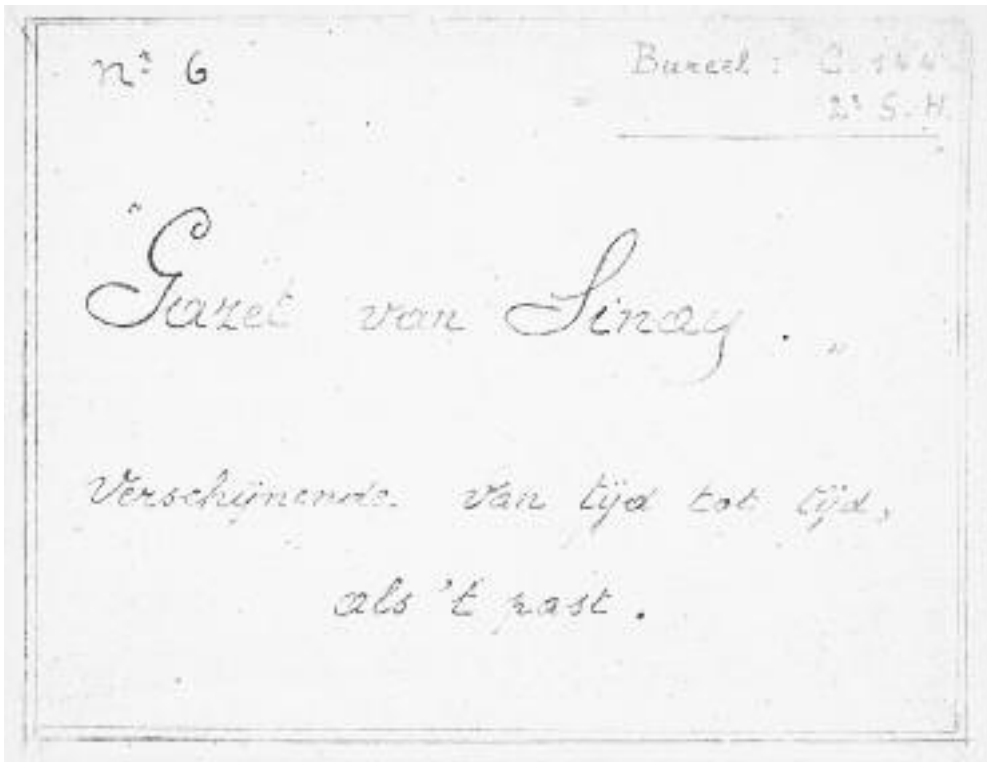 nr 6
Bureel : C.144
2e S.H.
"Gazet van Sinay."
Verschijnende van tijd tot tijd,
als 't past.